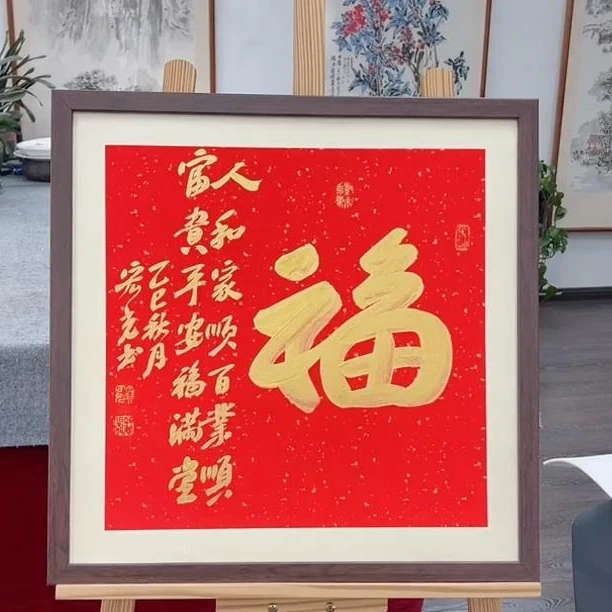 福
人和家顺百業順
富貴平安福满堂
乙巳秋月
宏光书